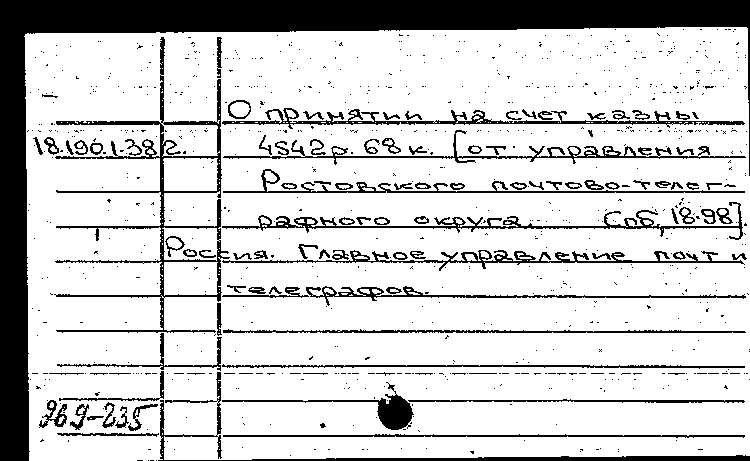 О принятии на счет казны
18.190.1.38 г. 4542 р. 68 к. [от управления
Ростовского почтово-телег-
рафного округа. Спб, 18.98].
Россия. Главное управление почт и
телеграфов.
969-235